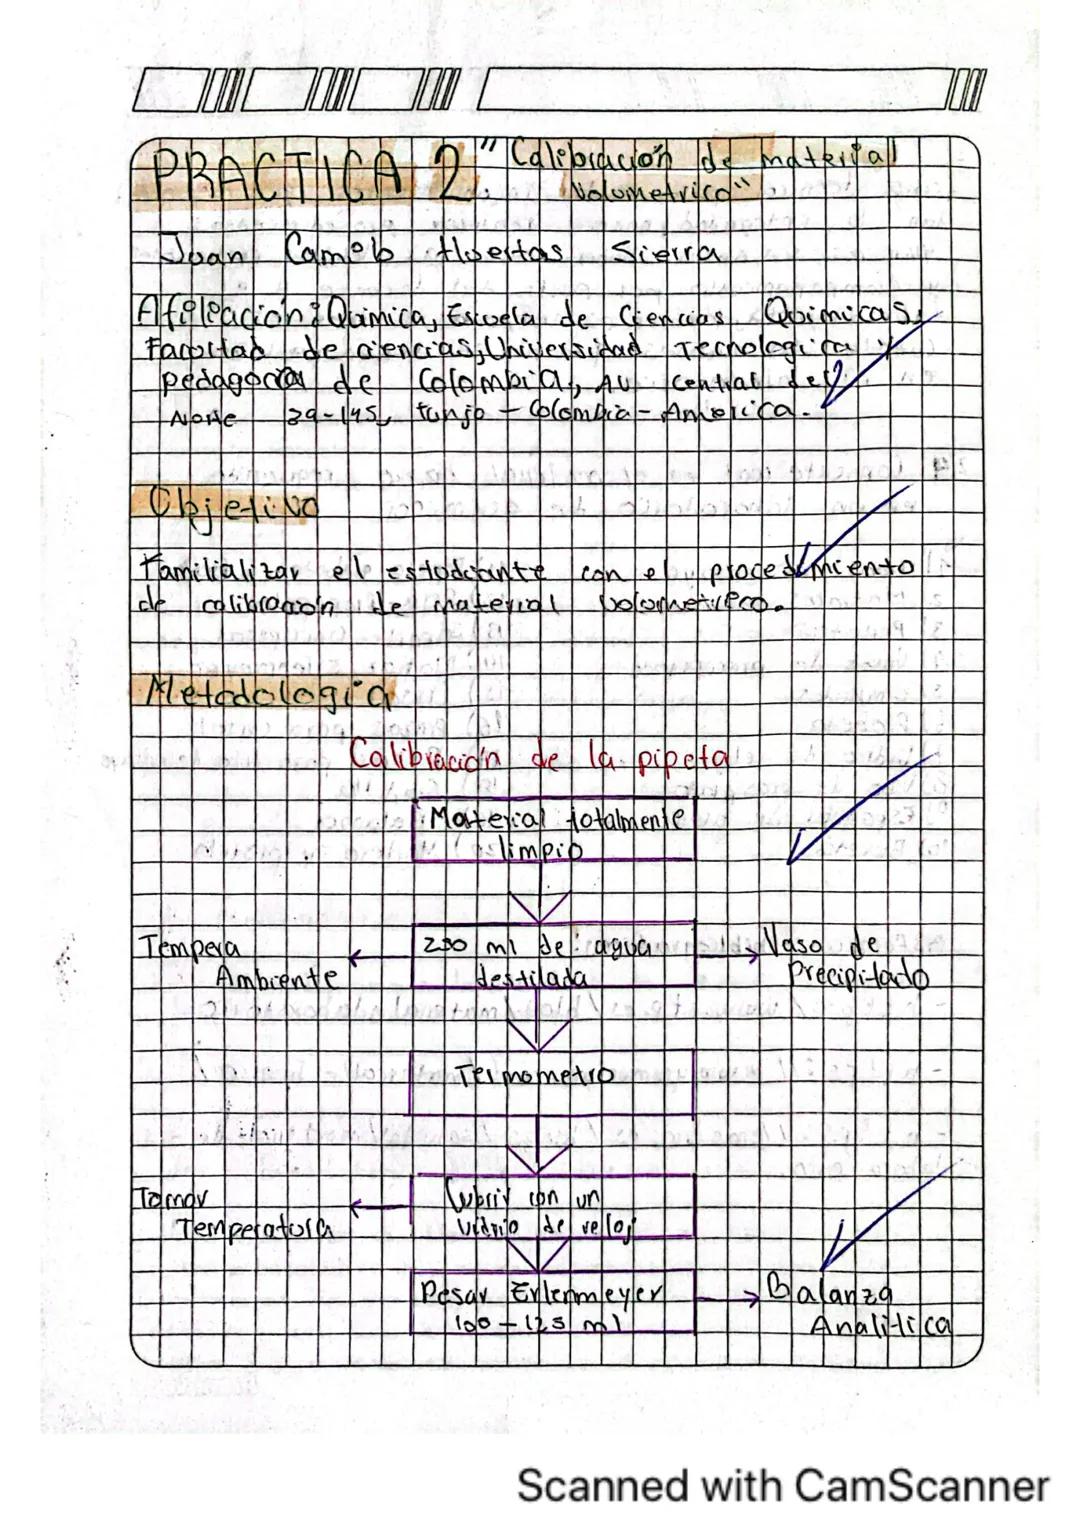 PRACTICA 2 "Calibración de material
Volumetrico"
Juan Camilo Huertas Sierra
Afiliación: Química, Escuela de Ciencias Químicas,
Facultad de ciencias, Universidad Tecnologica y
pedagogica de Colombia, AV central del
Norte 39-145, tunja - Colombia - America.
Objetivo
Familializar el estudiante con el procedimiento
de calibración de material volumetrico.
Metodologia
Calibración de la pipeta
Material totalmente
limpio
Tempera
Ambiente
250 ml de agua
destilada
Vaso de
Precipitado
Termometro
Tomar
Temperatura
Cubrir con un
vidrio de reloj
Pesar Erlenmeyer
100 - 125 ml
Balanza
Analitica
Scanned with CamScanner